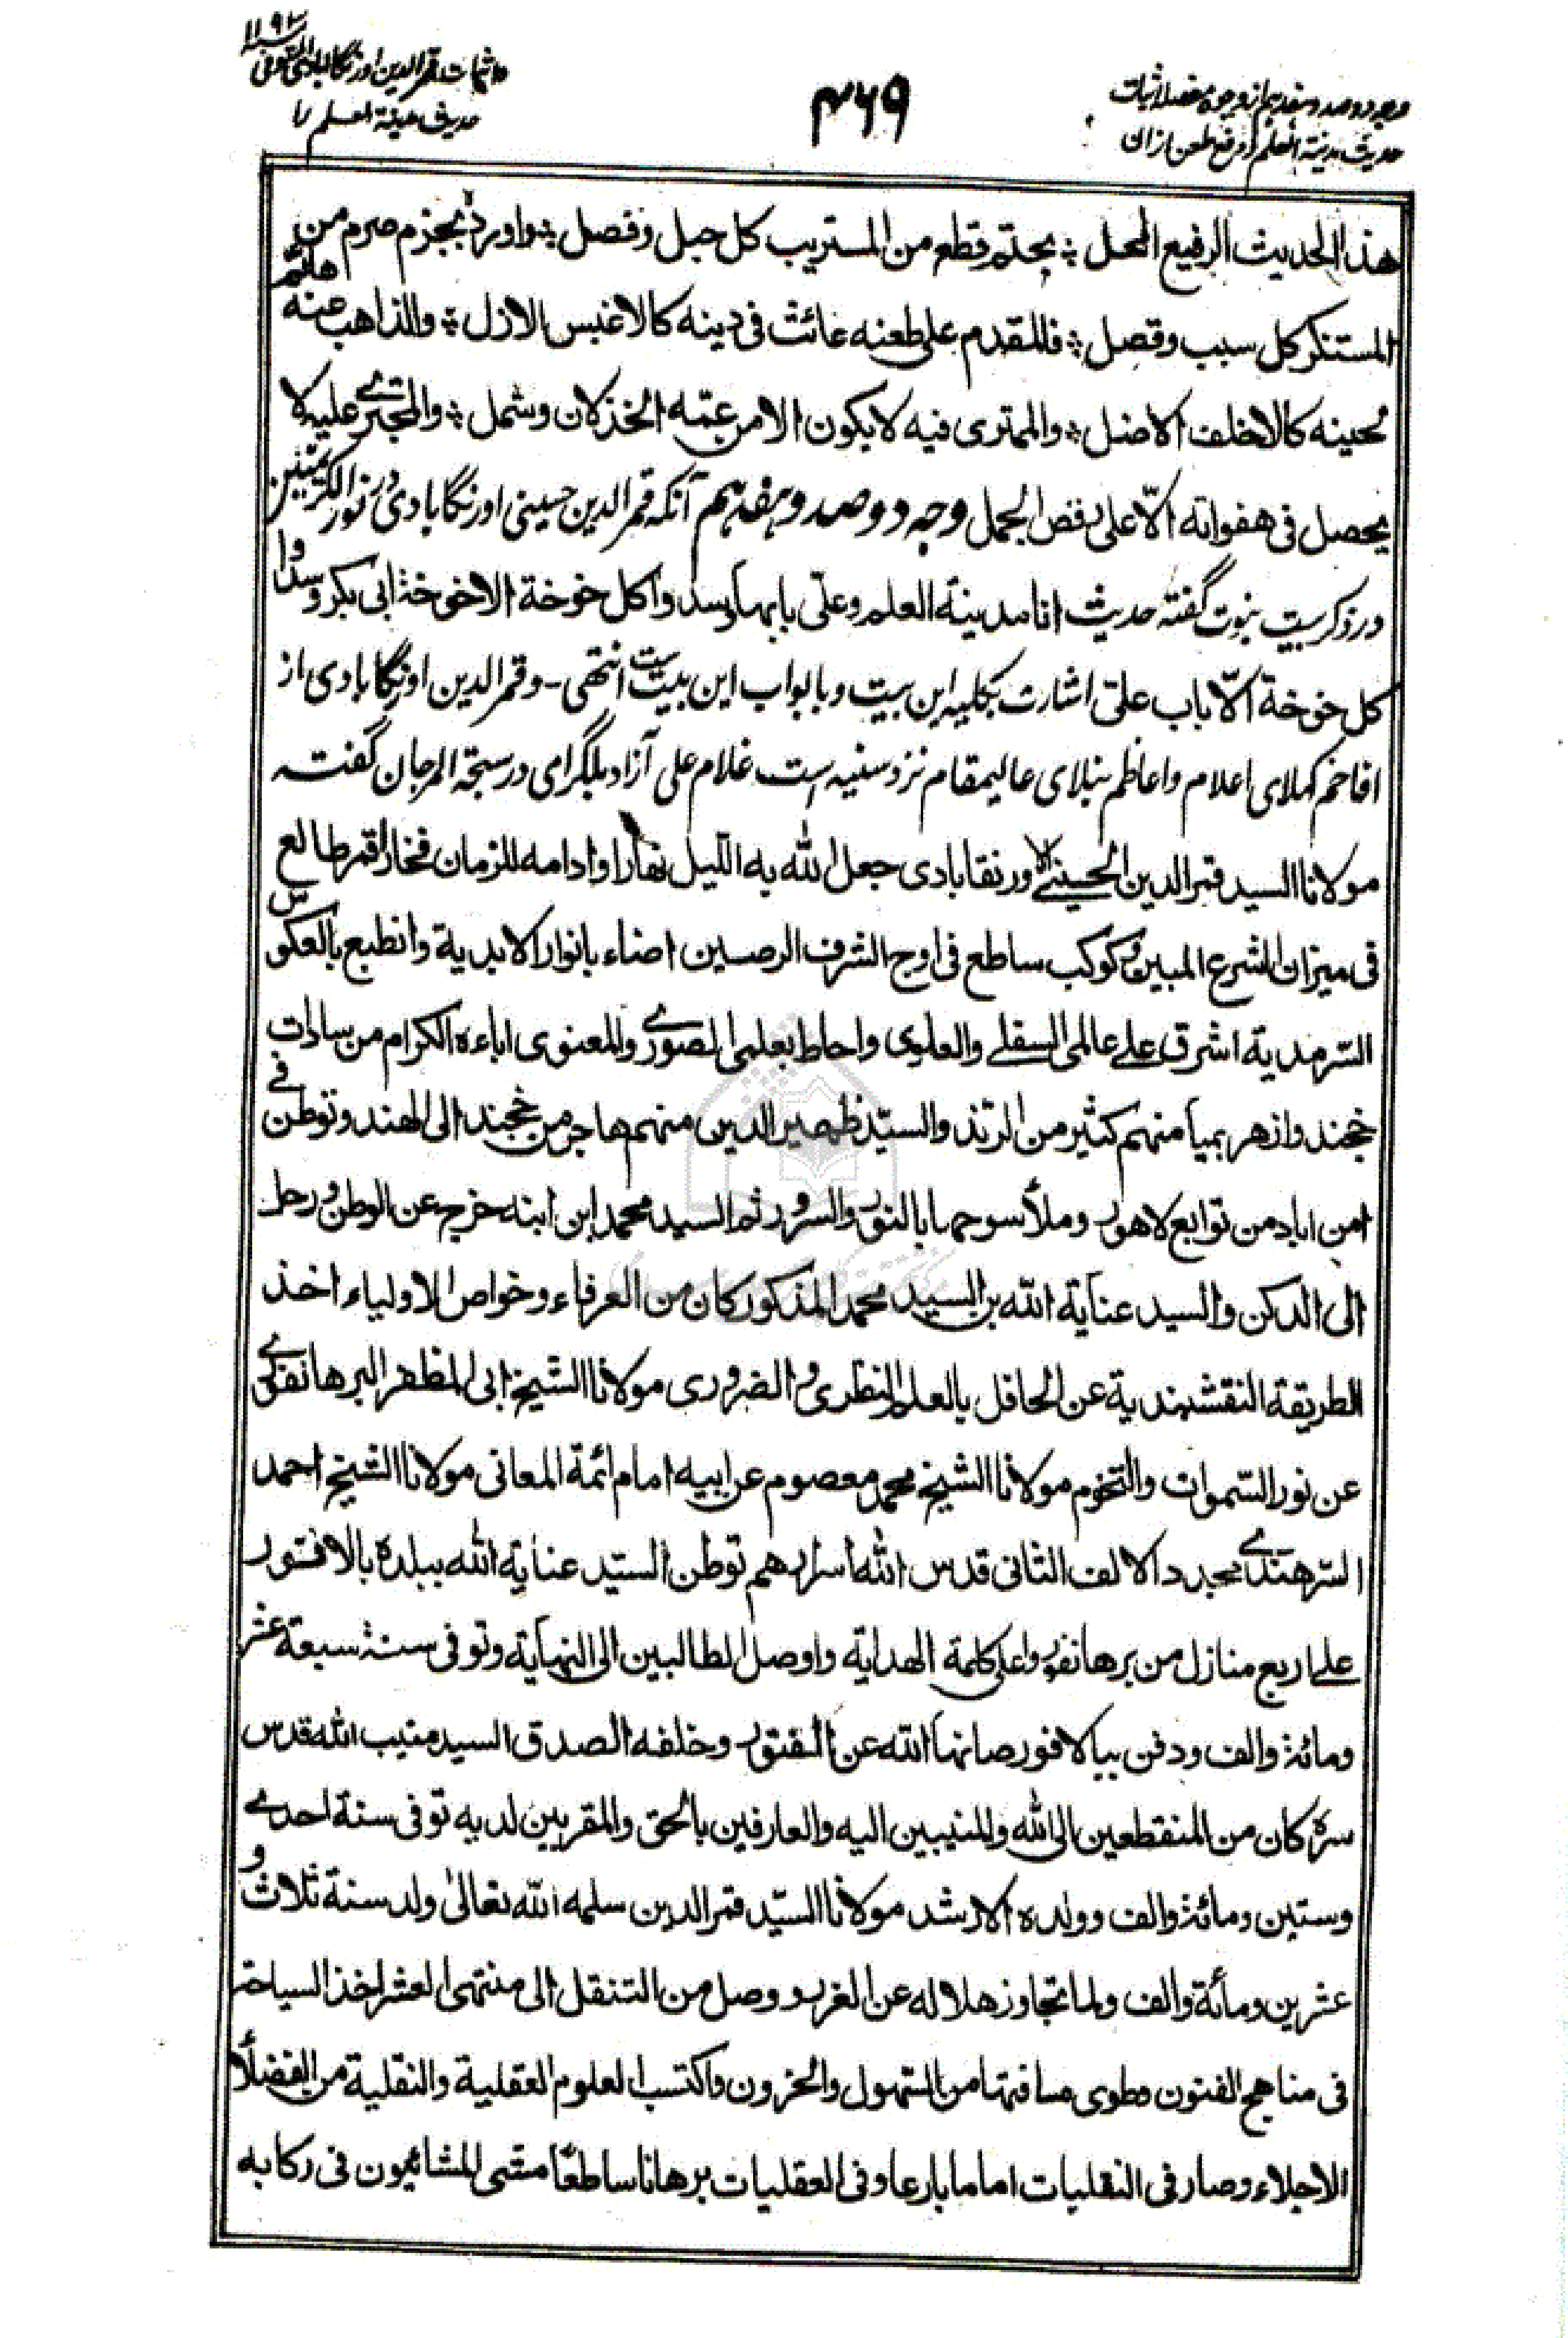 وجه دوصد و هفدهم از وجوه مفصله اثبات
حدیث مدینة العلم و رفع طعن ازان
۴۶۹
سنه ۱۱۹۳
اثبات قمرالدین اورنگابادی المتوفی
حدیث مدینة العلم را
هذا الحدیث الرفیع المحل ⁘ بحتم قطع من المستریب کل حبل وفصل ⁘ واورده بجزم صرم من
المستنکر کل سبب وقصل ⁘ فالمقدم علی طعنه عائث فی دینه کالاغبس الازل ⁘ والذاهب عنه هائم
لحینه کالاخلف الاضل ⁘ والممتری فیه لا یکون الا من عمّه الخذلان وشمل ⁘ والمجتری علیه لا
یحصل فی هفواته الّا علی رفض الجمل وجه دوصد وهفدهم آنکه قمر الدین حسینی اورنگابادی در نور الکریمتین
در ذکر بیت نبوت گفته حدیث انا مدینة العلم وعلیّ بابها وسدوا کل خوخة الا خوخة ابی بکر وسدوا
کل خوخة الّا باب علیّ اشارت بکلیه این بیت و بابواب این بیت ست انتهی ـ وقمر الدین اورنگابادی از
افاخم کملای اعلام واعاظم نبلای عالیمقام نزد سنیه است غلام علی آزاد بلگرامی در سبحة المرجان گفته
مولانا السید قمر الدین الحسینی الاورنقابادی جعل الله به اللیل نهارا وادامه للزمان فخارا قمر طالع
فی میزان الشرع المبین وکوکب ساطع فی اوج الشرف الرصین اضاء بانوار الابدیة وانطبع بالعکوس
السّرمدیة اشرق علی عالمی السفلی والعلوی واحاط بعلمی الصوری والمعنوی اباءه الکرام من سادات
خجند وازهر بمیامنهم کثیر من الرند والسیّد ظهیر الدین منهم هاجر من خجند الی الهند وتوطن فی
امن اباد من توابع لاهور وملأ سوحها بالنور والسرور ثم السید محمد ابن ابنه خرج عن الوطن ورحل
الی الدکن والسید عنایة الله بن السید محمد المذکور کان من العرفاء وخواص الاولیاء اخذ
الطریقة النقشبندیة عن الحافل بالعلم النظری والضروری مولانا الشیخ ابی المظفر البرهانفوری
عن نور السّموات والتخوم مولانا الشیخ محمد معصوم عن ابیه امام ائمة المعانی مولانا الشیخ احمد
السّرهندی مجدد الالف الثانی قدس الله اسرارهم توطن السیّد عنایة الله ببلدة بالافور
علی اربع منازل من برهانفور واعلی کلمة الهدایة واوصل الطالبین الی النهایة وتوفی سنة سبعة عشر
ومائة والف ودفن ببالافور صانها الله عن الفتور وخلفه الصدق السید منیب الله قدس
سره کان من المنقطعین الی الله والمنیبین الیه والعارفین بالحق والمقربین لدیه توفی سنة احدی
وستین ومائة والف وولده الارشد مولانا السیّد قمر الدین سلمه الله تعالی ولد سنة ثلاث و
عشرین ومأئة والف ولما تجاوز هلاله عن الغرب ووصل من التنقل الی منتهی العشر اخذ السیاحة
فی مناهج الفنون وطوی مسافتها من السّهول والحزون واکتسب العلوم العقلیة والنقلیة من الفضلاء
الاجلاء وصار فی النقلیات اماما بارعا وفی العقلیات برهانا ساطعًا مشی المشائیون فی رکابه